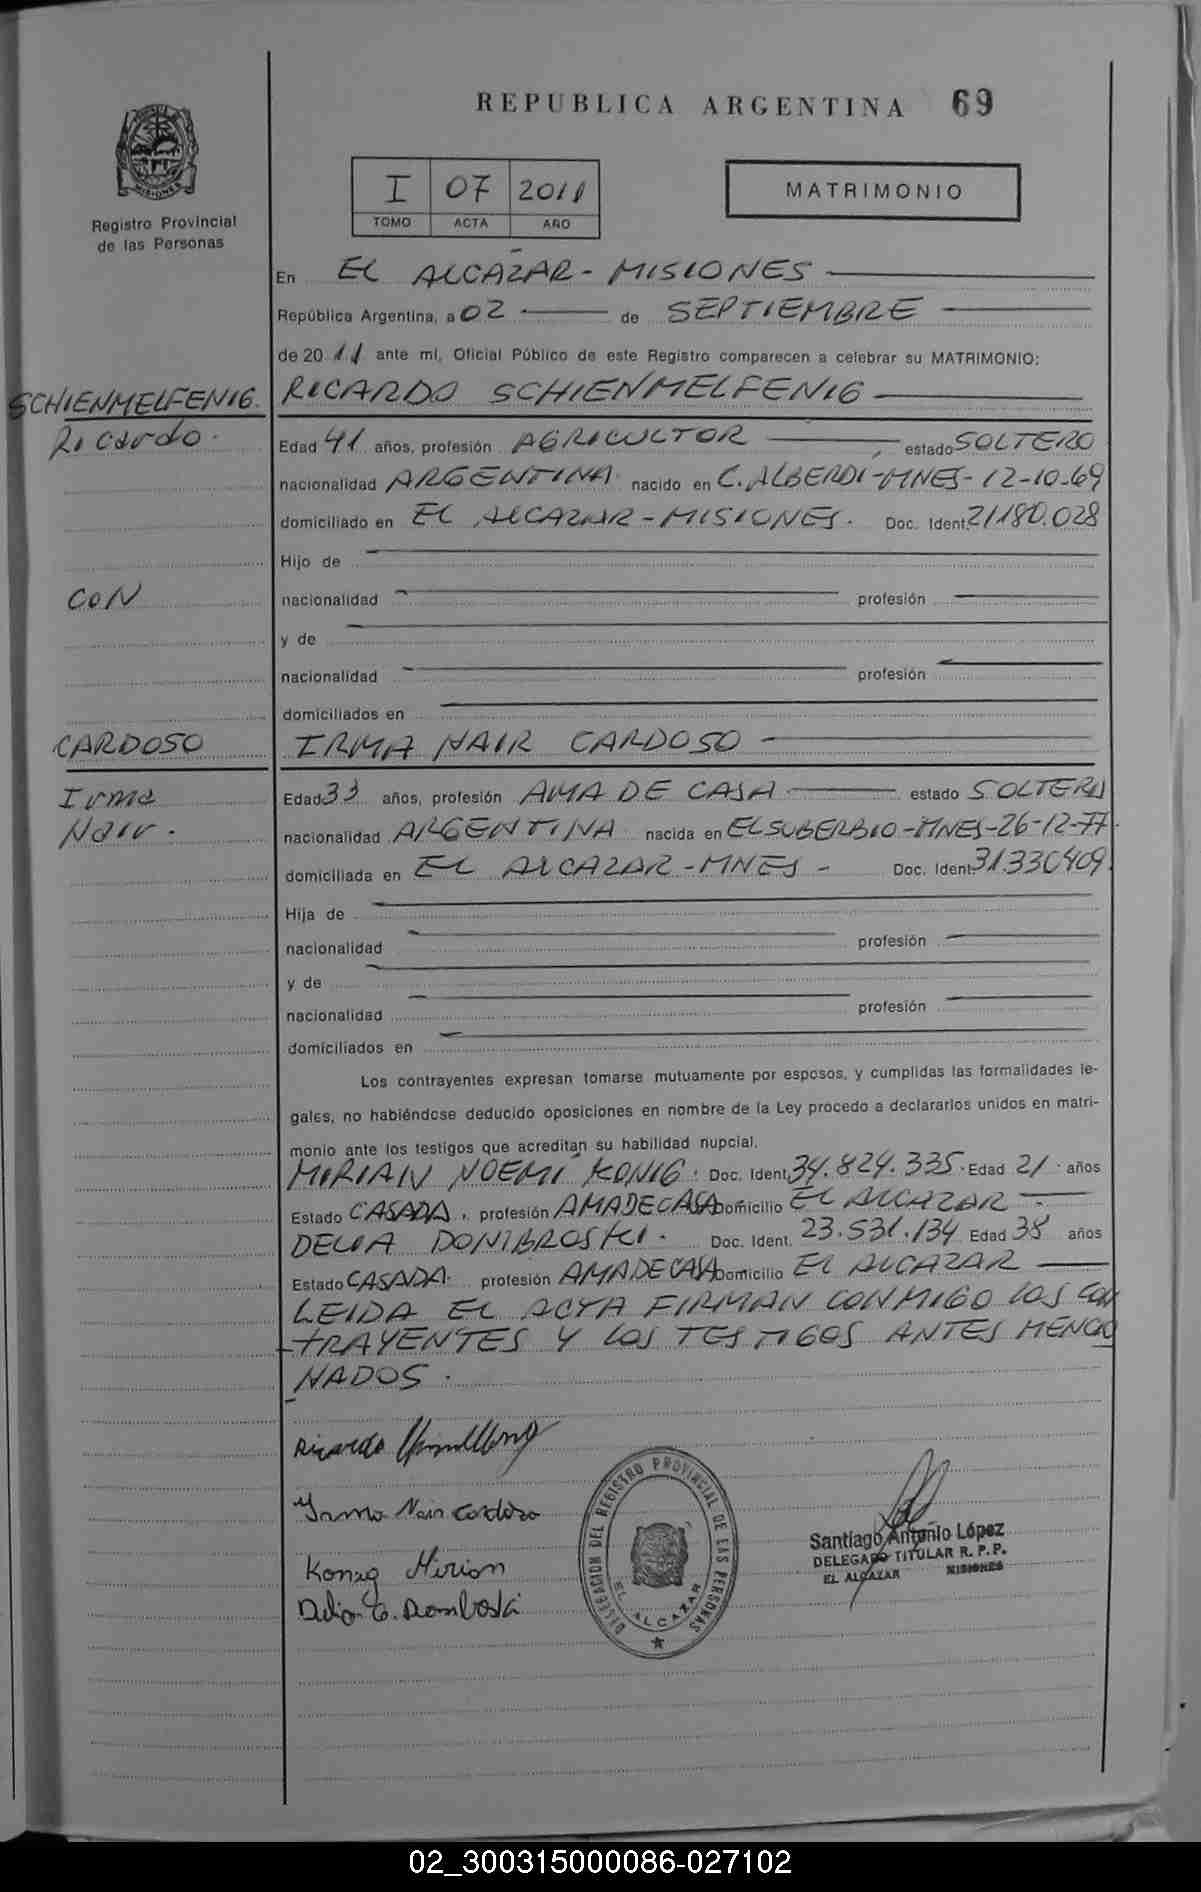 REPUBLICA ARGENTINA 69
MISIONES
Registro Provincial
de las Personas
I 07 2011
TOMO ACTA AÑO
MATRIMONIO
En EL ALCAZAR - MISIONES
República Argentina, a 02 de SEPTIEMBRE
de 20 11 ante mi, Oficial Público de este Registro comparecen a celebrar su MATRIMONIO:
SCHIENMELFENIG. RICARDO SCHIENMELFENIG
Ricardo. Edad 41 años, profesión AGRICULTOR estado SOLTERO
nacionalidad ARGENTINA nacido en C. ALBERDI-MNES- 12-10-69
domiciliado en EL ALCAZAR - MISIONES. Doc. Ident. 21180.028
Hijo de
CON nacionalidad profesión
y de
nacionalidad profesión
domiciliados en
CARDOSO IRMA NAIR CARDOSO
Irma Edad 33 años, profesión AMA DE CASA estado SOLTERA
Nair. nacionalidad ARGENTINA nacida en EL SUBERBIO-MNES-26-12-77.
domiciliada en EL ALCAZAR-MNES - Doc. Ident. 31.330409.
Hija de
nacionalidad profesión
y de
nacionalidad profesión
domiciliados en
Los contrayentes expresan tomarse mutuamente por esposos, y cumplidas las formalidades le-
gales, no habiéndose deducido oposiciones en nombre de la Ley procedo a declararlos unidos en matri-
monio ante los testigos que acreditan su habilidad nupcial.
MIRIAN NOEMI KONIG. Doc. Ident. 34.824.335. Edad 21 años
Estado CASADA, profesión AMA DE CASA Domicilio EL ALCAZAR
DELIA DOMBROSKI. Doc. Ident. 23.531.134 Edad 38 años
Estado CASADA. profesión AMA DE CASA Domicilio EL ALCAZAR
LEIDA EL ACTA FIRMAN CONMIGO LOS CON
TRAYENTES Y LOS TESTIGOS ANTES MENCIO
NADOS.
Ricardo
Irma Nair Cardozo
Konig Mirian
DELEGACION DEL REGISTRO PROVINCIAL DE LAS PERSONAS
EL ALCAZAR
Santiago Antonio López
DELEGADO TITULAR R. P. P.
EL ALCAZAR MISIONES
02_300315000086-027102